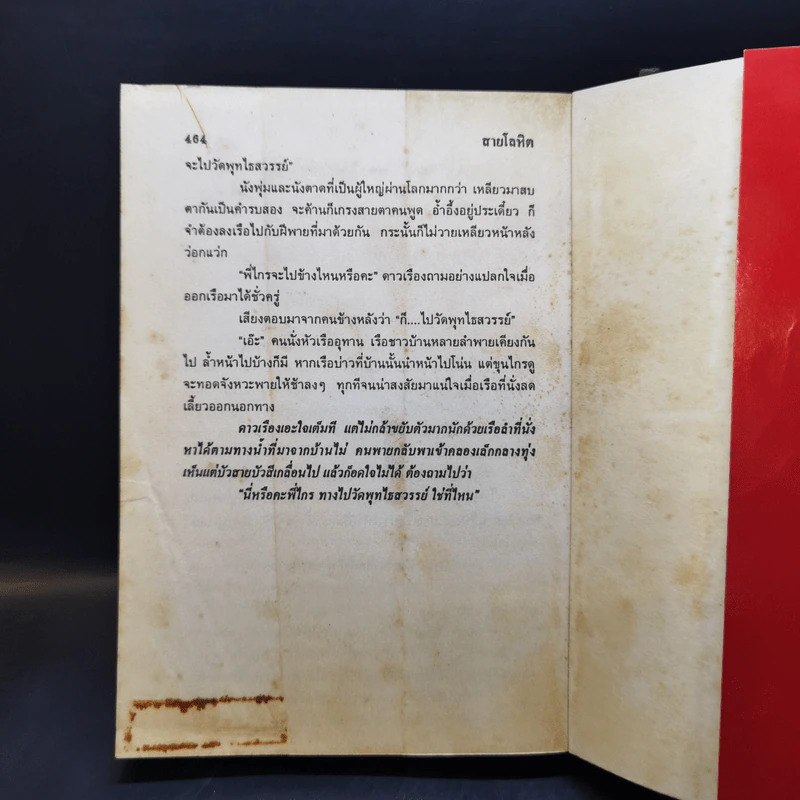 464
สายโลหิต
จะไปวัดพุทไธสวรรย์”
นังพุ่มและนังตาดที่เป็นผู้ใหญ่ผ่านโลกมากกว่า เหลียวมาสบ
ตากันเป็นคำรบสอง จะค้านก็เกรงสายตาคนพูด อ้ำอึ้งอยู่ประเดี๋ยว ก็
จำต้องลงเรือไปกับฝีพายที่มาด้วยกัน กระนั้นก็ไม่วายเหลียวหน้าหลัง
ว่อกแว่ก
“พี่ไกรจะไปข้างไหนหรือคะ” ดาวเรืองถามอย่างแปลกใจเมื่อ
ออกเรือมาได้ชั่วครู่
เสียงตอบมาจากคนข้างหลังว่า “ก็....ไปวัดพุทไธสวรรย์”
“เอ๊ะ” คนนั่งหัวเรืออุทาน เรือชาวบ้านหลายลำพายเคียงกัน
ไป ล้ำหน้าไปบ้างก็มี หากเรือบ่าวที่บ้านนั้นนำหน้าไปโน่น แต่ขุนไกรดู
จะทอดจังหวะพายให้ช้าลงๆ ทุกทีจนน่าสงสัยมาแน่ใจเมื่อเรือที่นั่งลด
เลี้ยวออกนอกทาง
ดาวเรืองเอะใจเต็มที แต่ไม่กล้าขยับตัวมากนักด้วยเรือลำที่นั่ง
หาได้ตามทางน้ำที่มาจากบ้านไม่ คนพายกลับพาเข้าคลองเล็กกลางทุ่ง
เห็นแต่บัวสายบัวสีเกลื่อนไป แล้วก็อดใจไม่ได้ ต้องถามไปว่า
“นี่หรือคะพี่ไกร ทางไปวัดพุทไธสวรรย์ ใช่ที่ไหน”